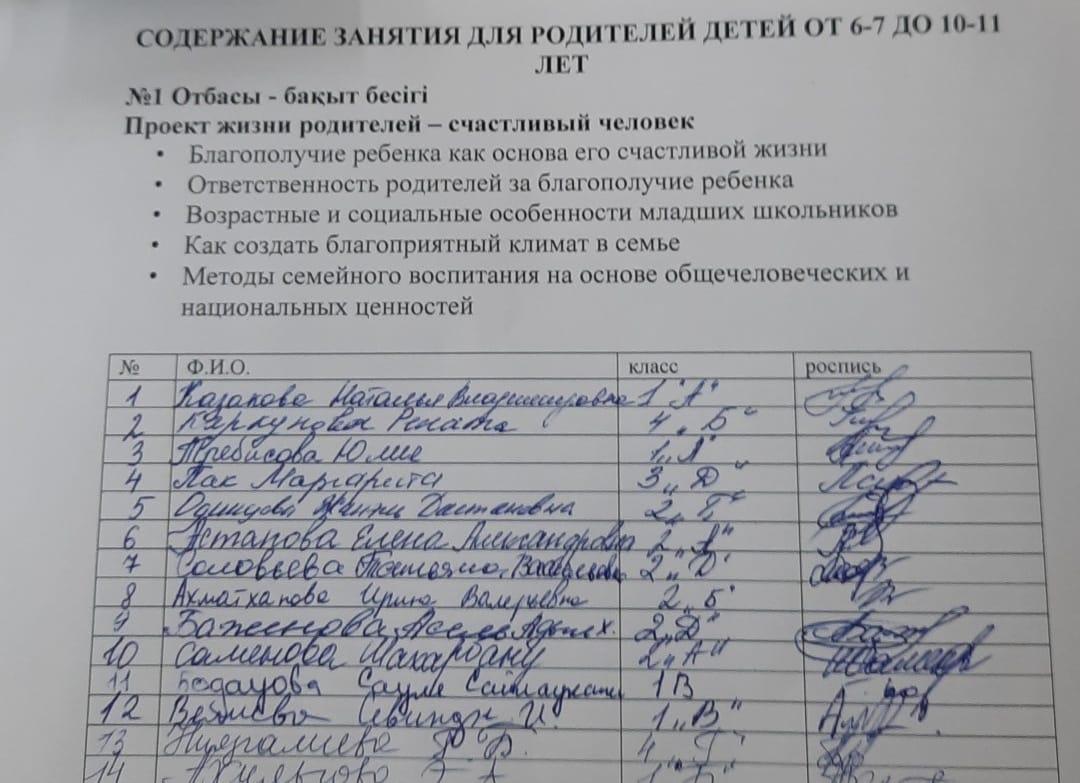 СОДЕРЖАНИЕ ЗАНЯТИЯ ДЛЯ РОДИТЕЛЕЙ ДЕТЕЙ ОТ 6-7 ДО 10-11
ЛЕТ
№1 Отбасы - бақыт бесігі
Проект жизни родителей – счастливый человек
• Благополучие ребенка как основа его счастливой жизни
• Ответственность родителей за благополучие ребенка
• Возрастные и социальные особенности младших школьников
• Как создать благоприятный климат в семье
• Методы семейного воспитания на основе общечеловеческих и
национальных ценностей
№ Ф.И.О. класс роспись
1 Казакова Наталья Владимировна 1 "А"
2 Рената 4 „Б“
3 Требисова Юлия 1 „А“
4 Пак Маргарита 3 „Д“
5 Одинцова Жанна Дастановна 2 „Б“
6 Астапова Елена Александровна 2 „А“
7 Соловьева Татьяна 2 „Д“
8 Ахматханова Ирина Валерьевна 2 „Б“
9 Баженова Асель 2 „Д“
10 Саменова Шахарбану 2 „А“
11 Сауле 1 В
12 И. 1 „В“
13 Б. 4 „Г“
14 А 1 "Б"